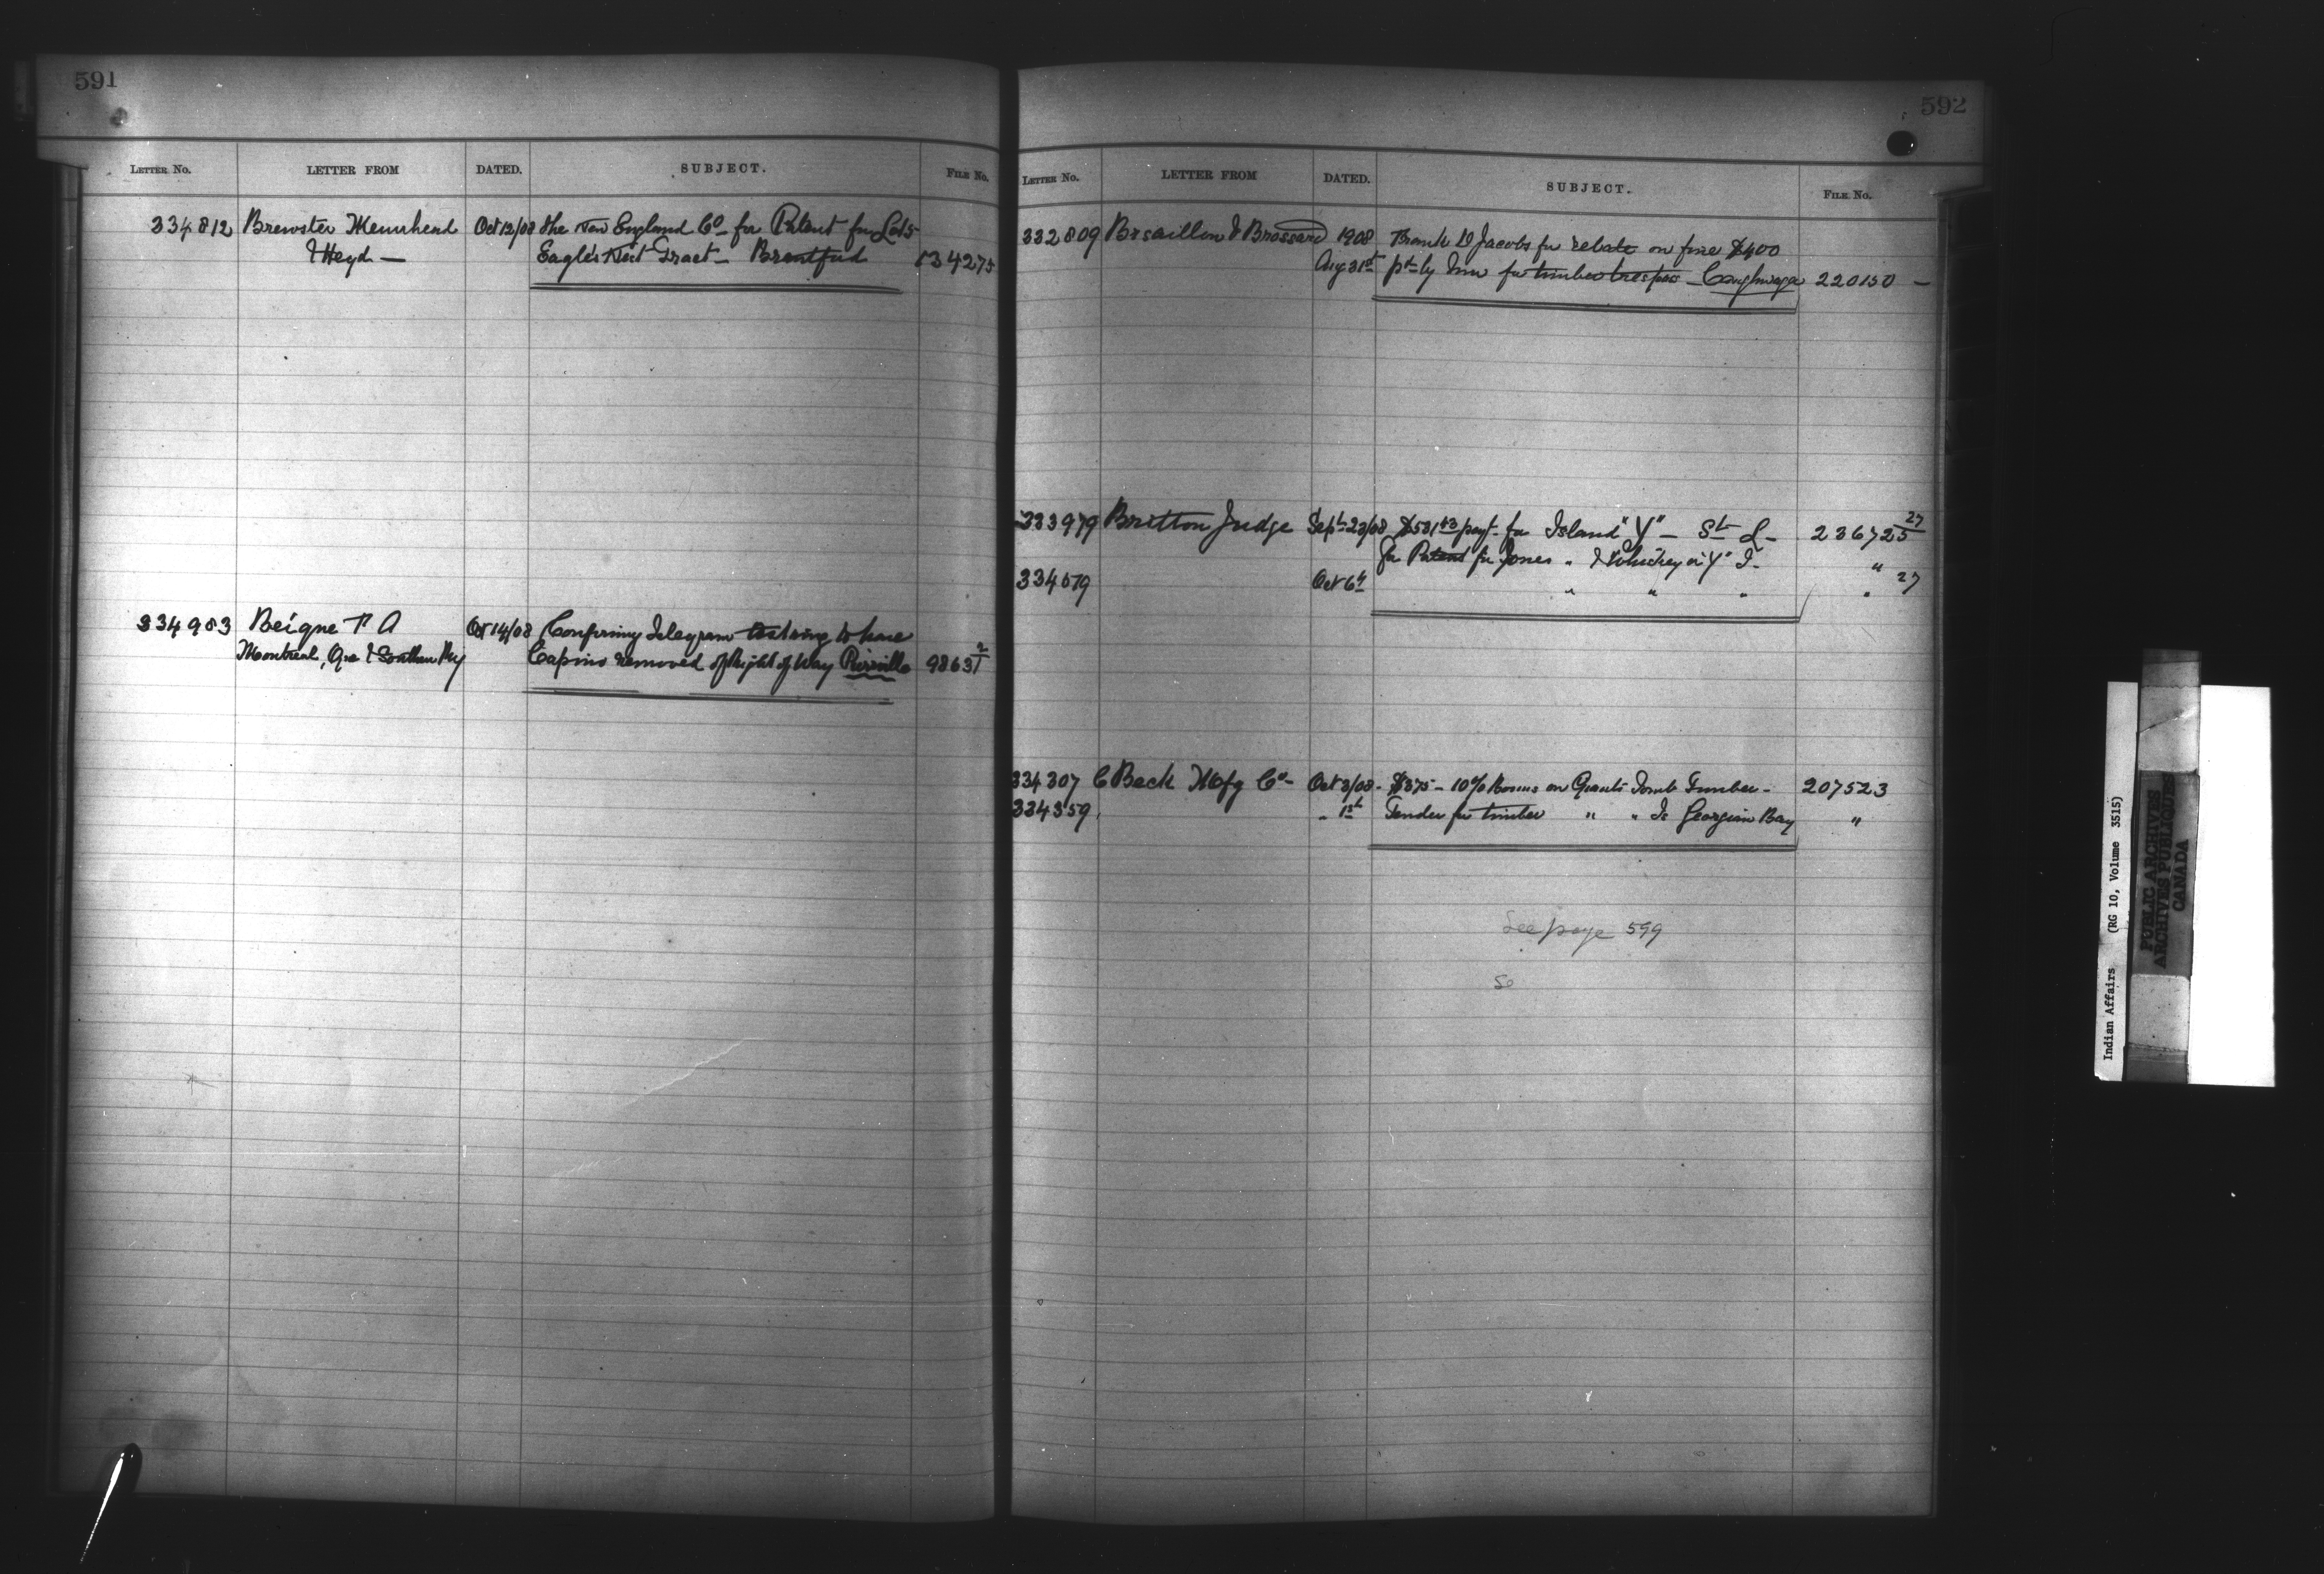 591
LETTER No. LETTER FROM DATED. SUBJECT. FILE No.
334812 Brewster Muirhead Oct 12/08 The New England Co for Patent for Lots
& Heyd — Eagle's Nest Tract — Brantford 134275
334983 Beique P A Oct 14/08 Confirming Telegram to have
Montreal, Que & Southern Ry removed of Right of Way Pierreville 98631 2
592
LETTER No. LETTER FROM DATED. SUBJECT. FILE No.
332809 Brossard 1908 Frank D Jacobs for rebate on fine $400
Aug 31st pd by him for timber trespass — Caughnawaga 220150 —
333979 Britton Judge Sept 23/08 $531 43 payt for Island "Y" — St L — 236725 27
for Patent for Jones " & in "Y" I. "
334579 Oct 6th " " " " 27
334307 C Beck Mfg Co — Oct 3/08 - $375 — 10% Bonus on Giants Tomb Timber — 207523
334359 " 1st Tender for timber " " Is Georgian Bay "
See page 599
Se
Indian Affairs (RG 10, Volume 3515)
PUBLIC ARCHIVES
ARCHIVES PUBLIQUES
CANADA